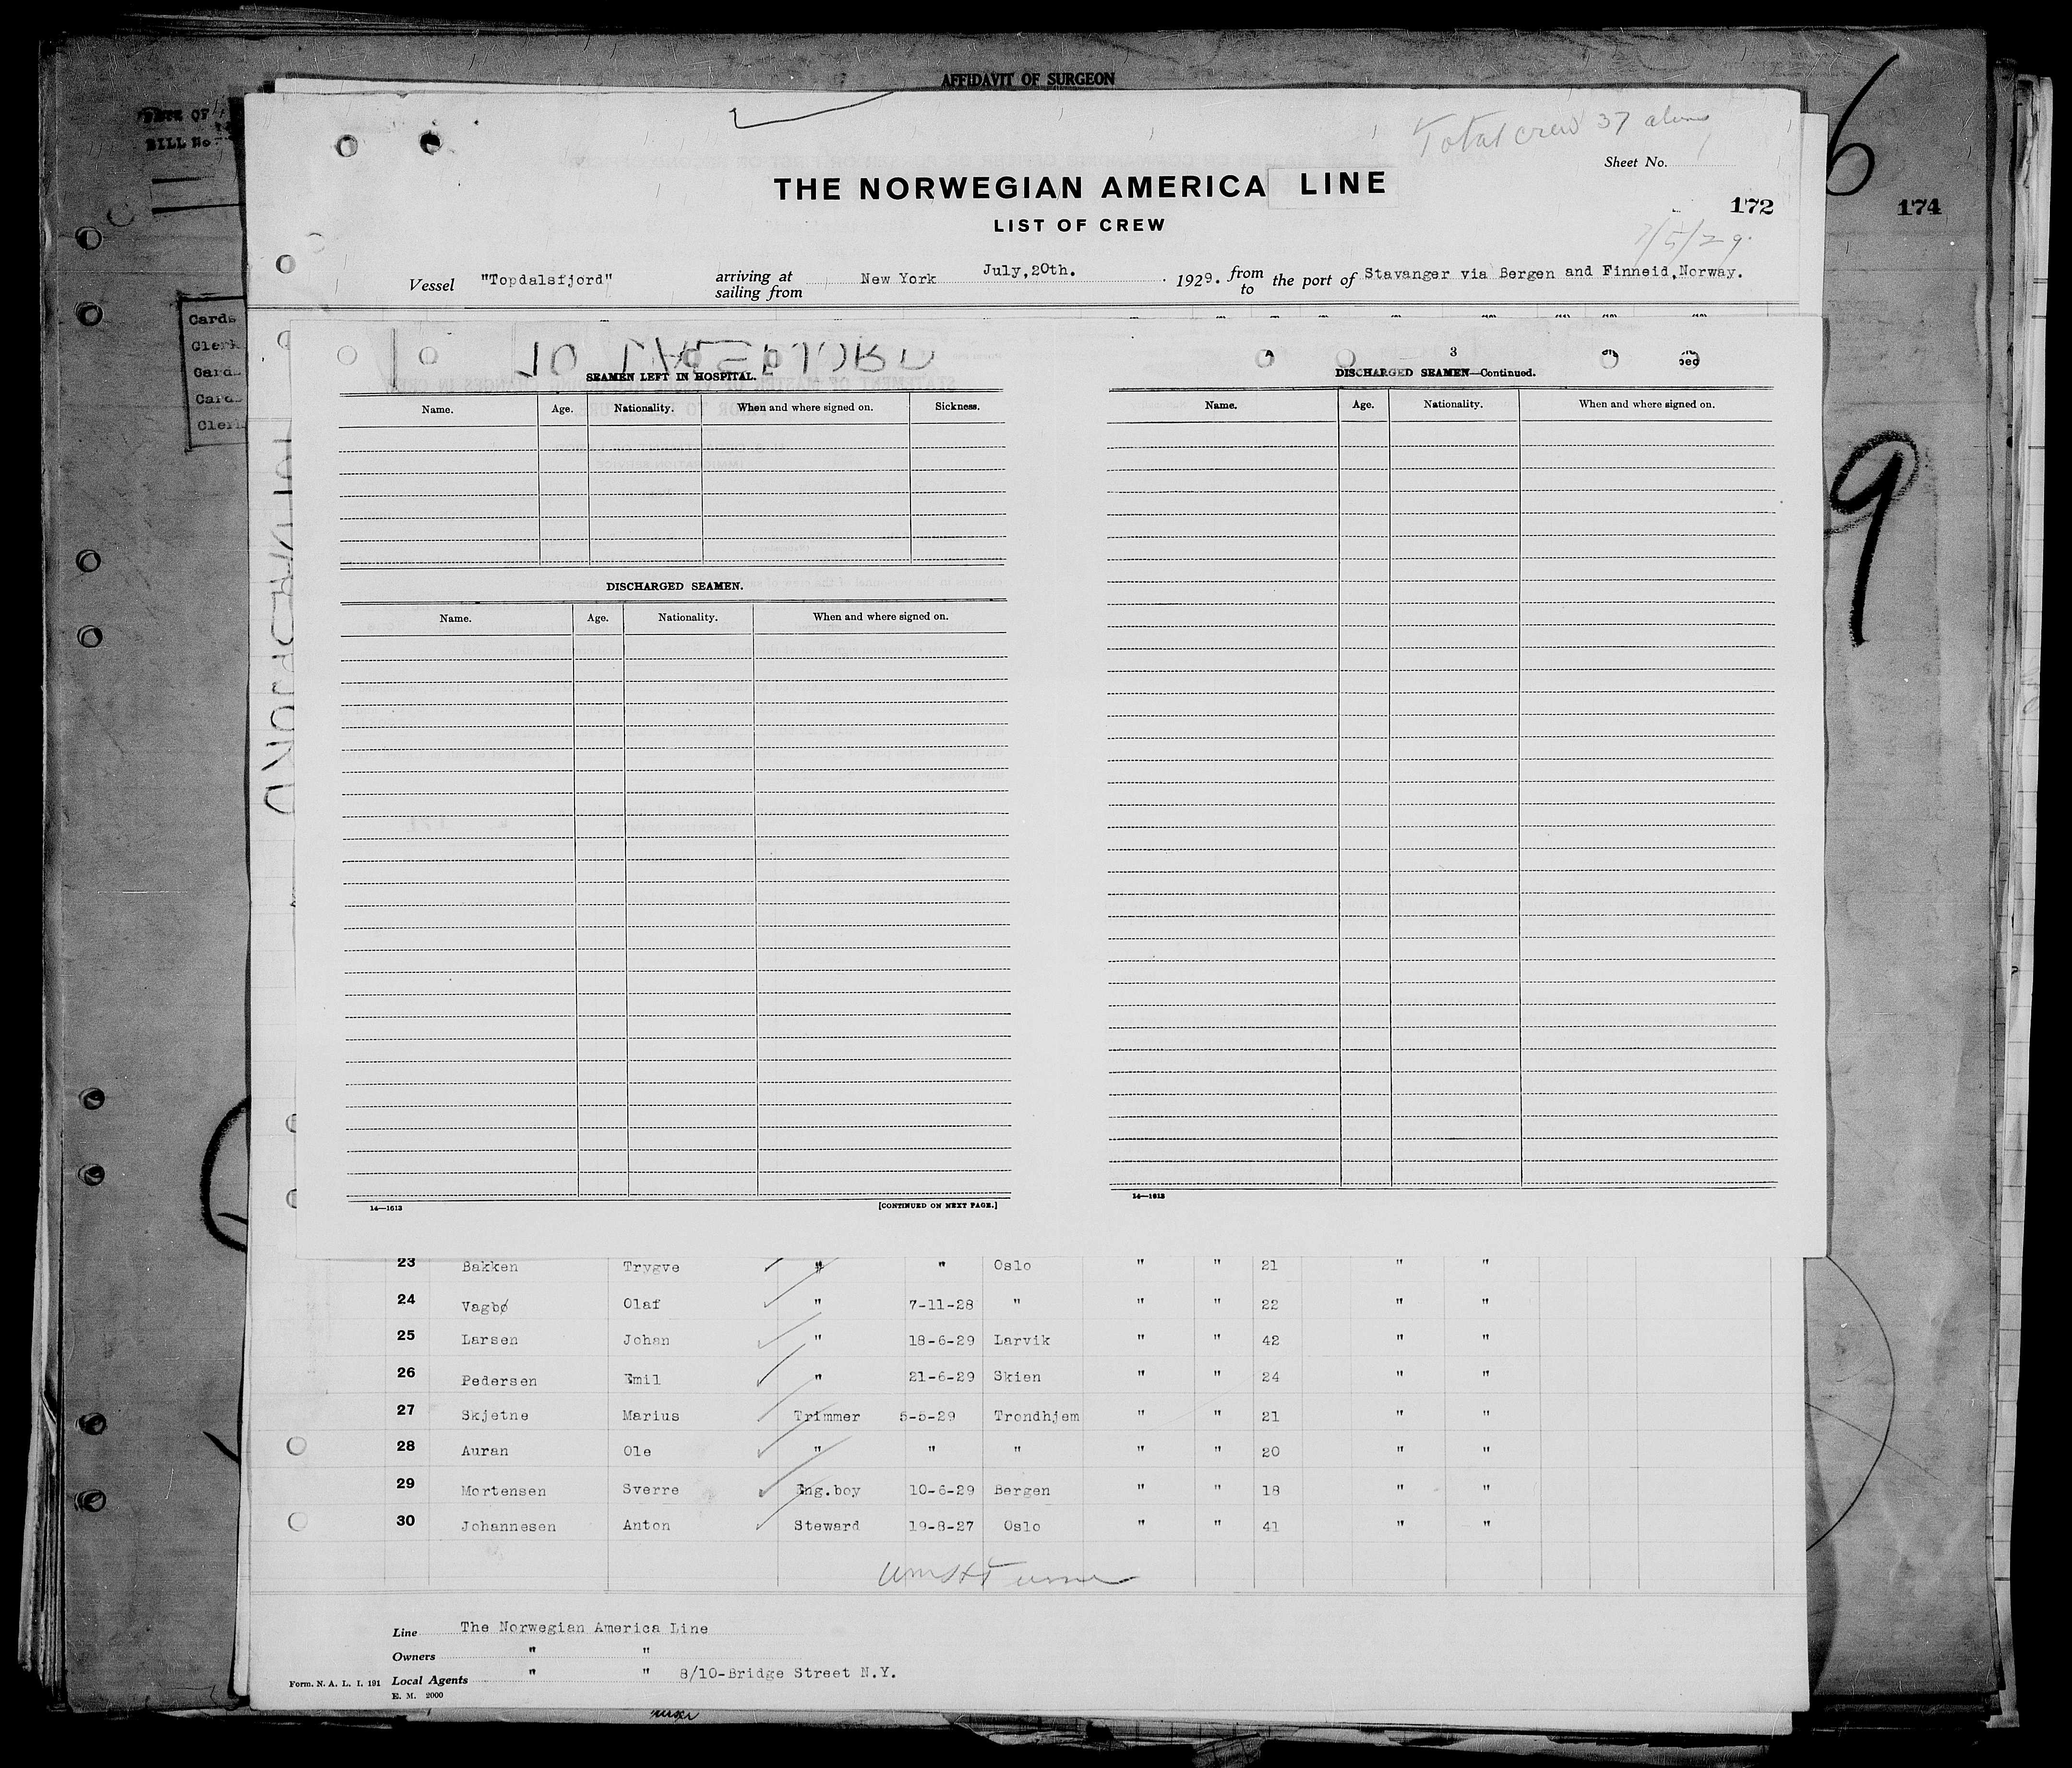 AFFIDAVIT OF SURGEON
BILL No.
Total crew 37 aliens
Sheet No. 1
THE NORWEGIAN AMERICA LINE
LIST OF CREW
172
174
6
7/5/29.
Vessel "Topdalsfjord" arriving at sailing from New York July,20th. 1929. from to the port of Stavanger via Bergen and Finneid,Norway.
Cards
Clerk
Card
Card
Clerk
9
3
SEAMEN LEFT IN HOSPITAL.
Name. Age. Nationality. When and where signed on. Sickness.
DISCHARGED SEAMEN.
Name. Age. Nationality. When and where signed on.
14—1613
[CONTINUED ON NEXT PAGE.]
DISCHARGED SEAMEN—Continued.
Name. Age. Nationality. When and where signed on.
14—1613
23 Bakken Trygve " " Oslo " " 21 " "
24 Vagbø Olaf " 7-11-28 " " " 22 " "
25 Larsen Johan " 18-6-29 Larvik " " 42 " "
26 Pedersen Emil " 21-6-29 Skien " " 24 " "
27 Skjetne Marius Trimmer 5-5-29 Trondhjem " " 21 " "
28 Auran Ole " " " " " 20 " "
29 Mortensen Sverre Eng.boy 10-6-29 Bergen " " 18 " "
30 Johannesen Anton Steward 19-8-27 Oslo " " 41 " "
Line The Norwegian America Line
Owners " "
Form. N. A. L. I. 191 Local Agents " " 8/10-Bridge Street N.Y.
E. M. 2000